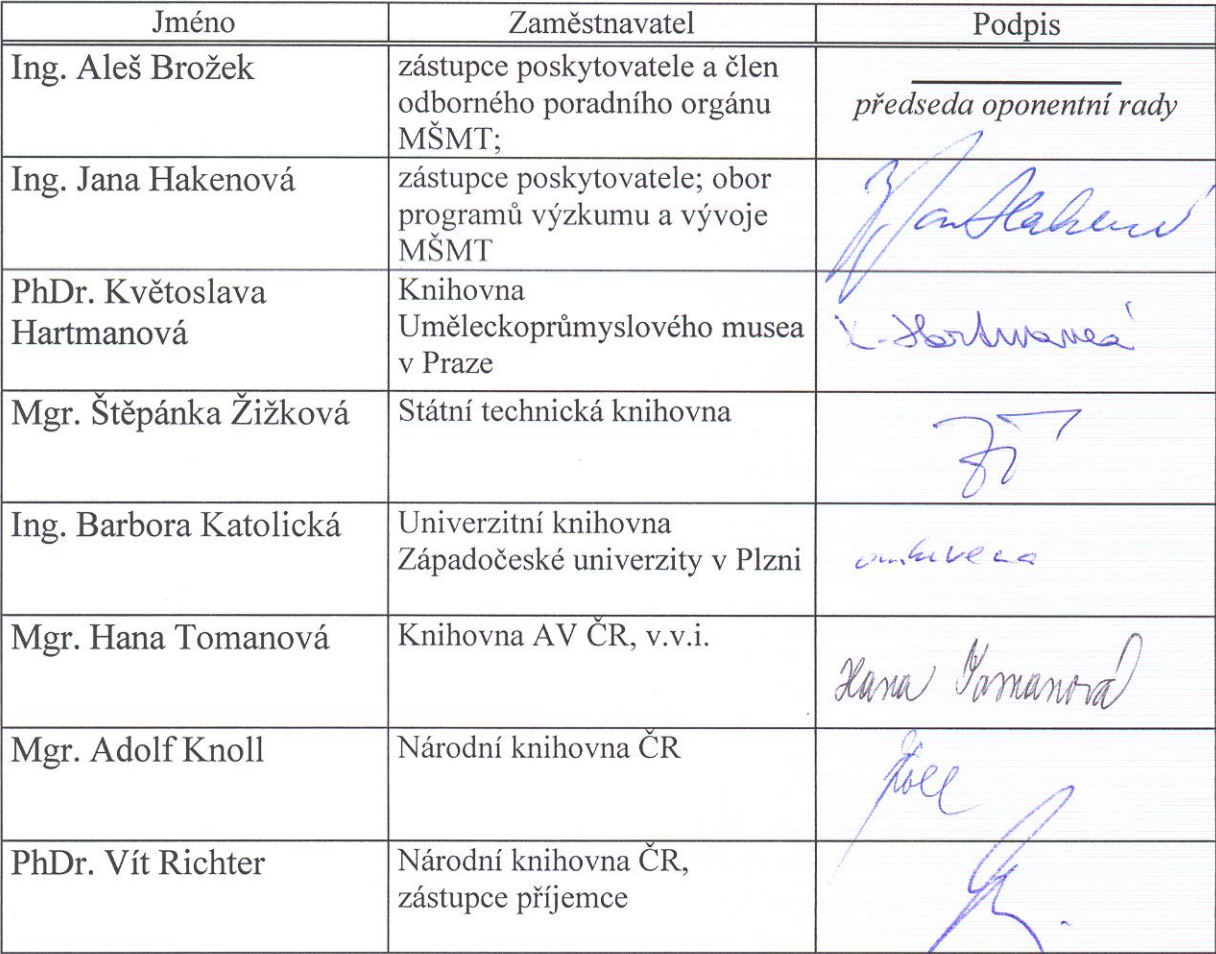 Jméno Zaměstnavatel Podpis
Ing. Aleš Brožek
zástupce poskytovatele a člen
odborného poradního orgánu
MŠMT;
předseda oponentní rady
Ing. Jana Hakenová
zástupce poskytovatele; obor
programů výzkumu a vývoje
MŠMT
PhDr. Květoslava
Hartmanová
Knihovna
Uměleckoprůmyslového musea
v Praze
K. Hartmanová
Mgr. Štěpánka Žižková
Státní technická knihovna
Ing. Barbora Katolická
Univerzitní knihovna
Západočeské univerzity v Plzni
omluvena
Mgr. Hana Tomanová
Knihovna AV ČR, v.v.i.
Hana Tomanová
Mgr. Adolf Knoll
Národní knihovna ČR
PhDr. Vít Richter
Národní knihovna ČR,
zástupce příjemce